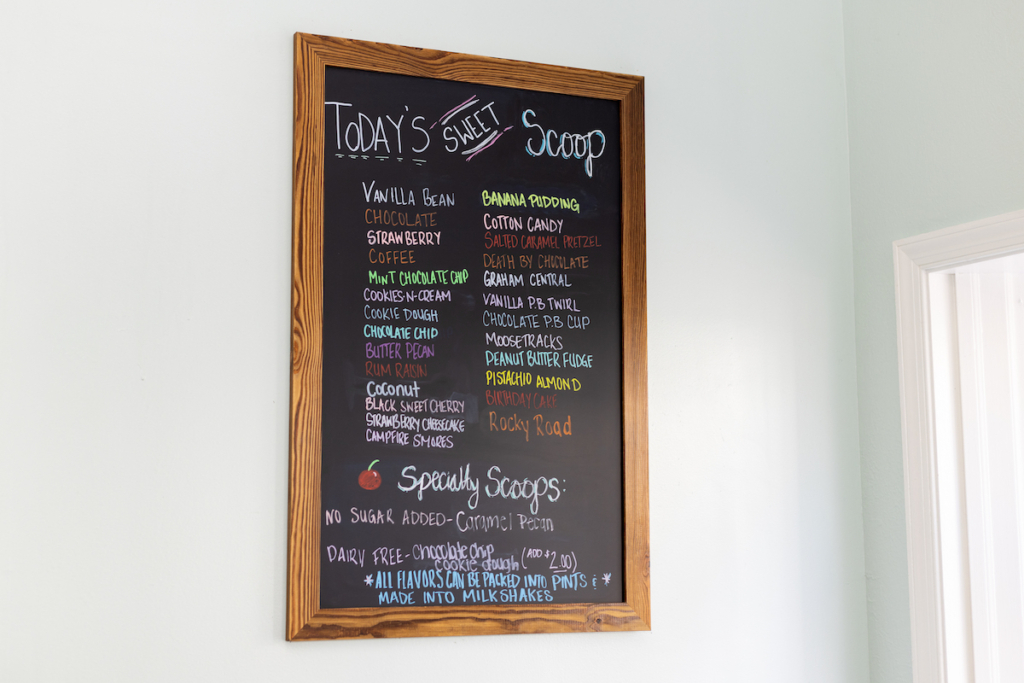 TODAY'S SWEET Scoop
VANILLA BEAN
CHOCOLATE
STRAWBERRY
COFFEE
MINT CHOCOLATE CHIP
COOKIES-N-CREAM
COOKIE DOUGH
CHOCOLATE CHIP
BUTTER PECAN
RUM RAISIN
Coconut
BLACK SWEET CHERRY
STRAWBERRY CHEESECAKE
CAMPFIRE SMORES
BANANA PUDDING
COTTON CANDY
SALTED CARAMEL PRETZEL
DEATH BY CHOCOLATE
GRAHAM CENTRAL
VANILLA P.B TWIRL
CHOCOLATE P.B CUP
MOOSETRACKS
PEANUT BUTTER FUDGE
PISTACHIO ALMOND
BIRTHDAY CAKE
Rocky Road
Specialty Scoops:
NO SUGAR ADDED- Caramel Pecan
DAIRY FREE- chocolate chip
cookie dough (ADD $2.00)
*ALL FLAVORS CAN BE PACKED INTO PINTS & *
MADE INTO MILKSHAKES